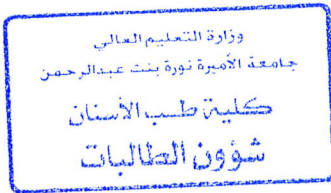 وزارة التعليم العالي
جامعة الأميرة نورة بنت عبدالرحمن
كلية طب الأسنان
شؤون الطالبات